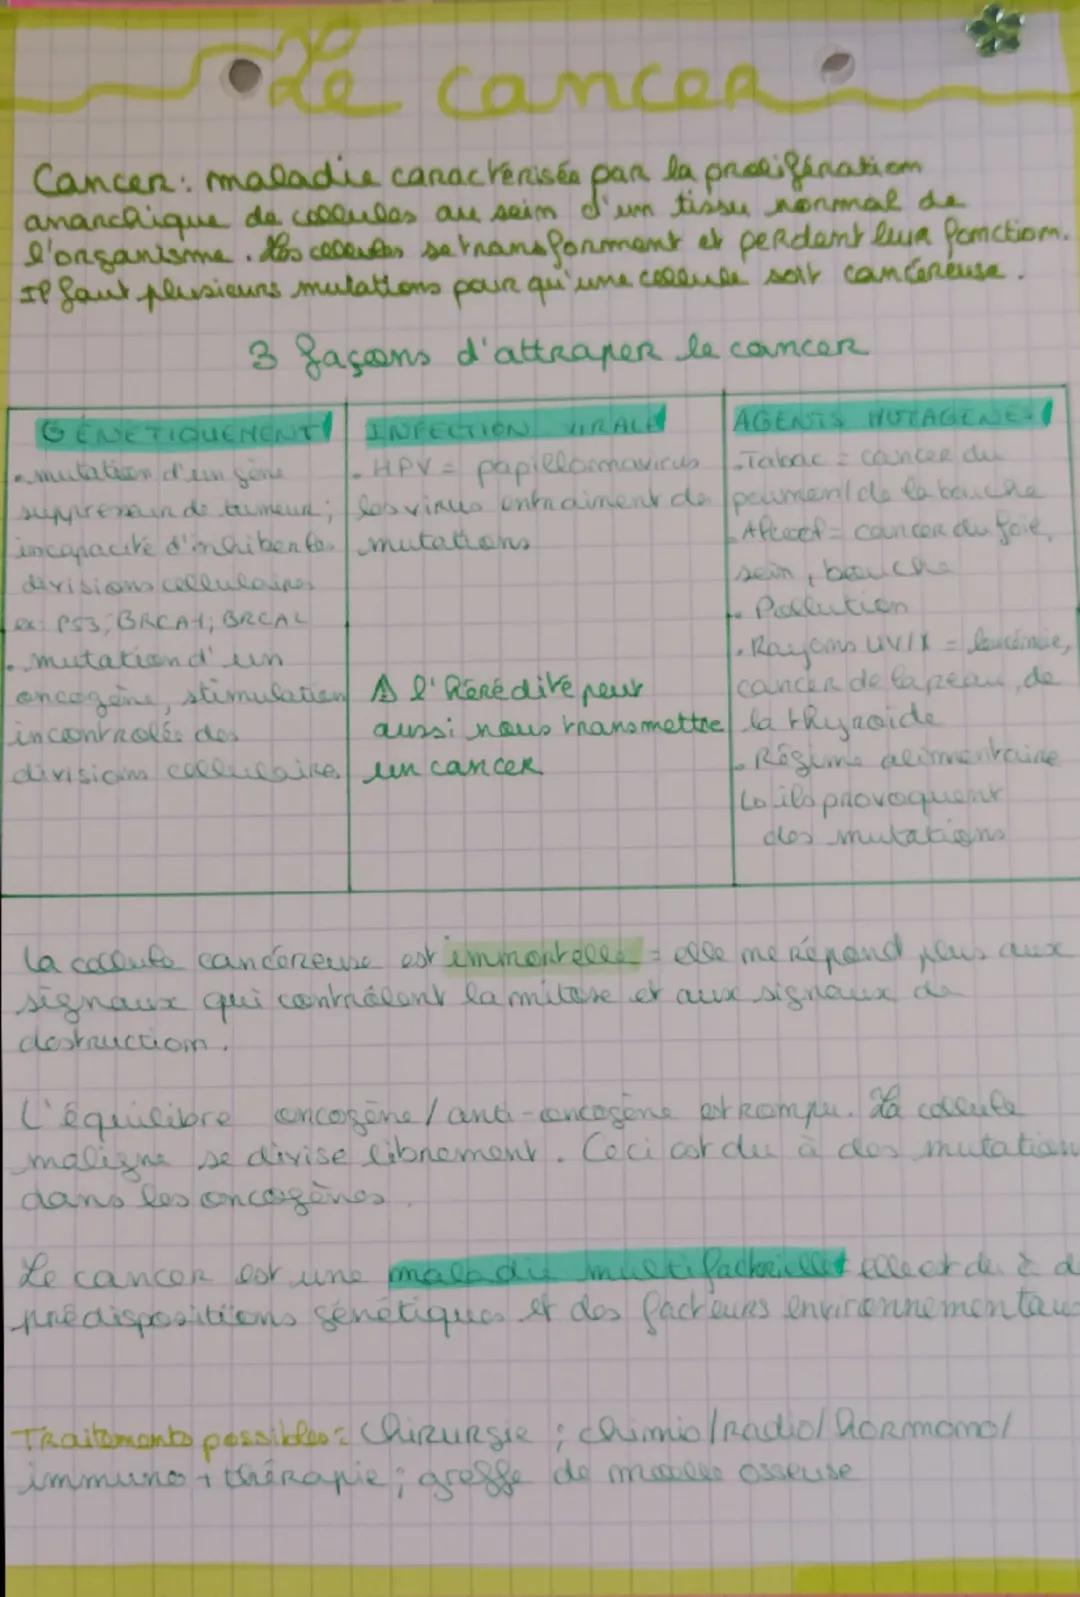 Le cancer
Cancer: maladie caractérisée par la prolifération
anarchique de cellules au sein d'un tissu normal de
l'organisme. Les cellules se transforment et perdent leur fonction.
Il faut plusieurs mutations pour qu'une cellule soit cancéreuse.
3 façons d'attraper le cancer
GÉNÉTIQUEMENT
• mutation d'un gène
suppresseur de tumeur;
incapacité d'inhiber les
divisions cellulaires
ex: P53; BRCA1; BRCA2
• mutation d'un
oncogène, stimulation
incontrolée des
divisions cellulaires
INFECTION VIRALE
• HPV = papillomavirus
les virus entraiment de
mutations
⚠ l'hérédité peut
aussi nous transmettre
un cancer
AGENTS MUTAGENES
• Tabac = cancer du
poumon/de la bouche
• Alcool = cancer du foie,
sein, bouche
• Pollution
• Rayons UV/X = leucémie,
cancer de la peau, de
la thyroïde
• Régime alimentaire
↳ ils provoquent
des mutations
La cellule cancéreuse est immortelle = elle ne répond plus aux
signaux qui contrôlent la mitose et aux signaux de
destruction.
L'équilibre oncogène/anti-oncogène est rompu. La cellule
maligne se divise librement. Ceci est du à des mutation
dans les oncogènes.
Le cancer est une maladie multifactorielle elle est du à d
prédispositions génétiques et des facteurs environnementaux
Traitements possibles: Chirurgie; chimio/radio/hormono/
immuno + thérapie; greffe de moelle osseuse